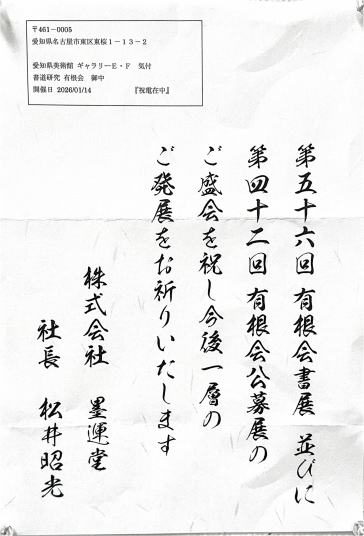 〒461-0005
愛知県名古屋市東区東桜1-13-2
愛知県美術館 ギャラリーE・F 気付
書道研究 有根会 御中
開催日 2026/01/14 『祝電在中』
第五十六回 有根会書展 並びに
第四十二回 有根会公募展の
ご盛会を祝し今後一層の
ご発展をお祈りいたします
株式会社 墨運堂
社長 松井昭光